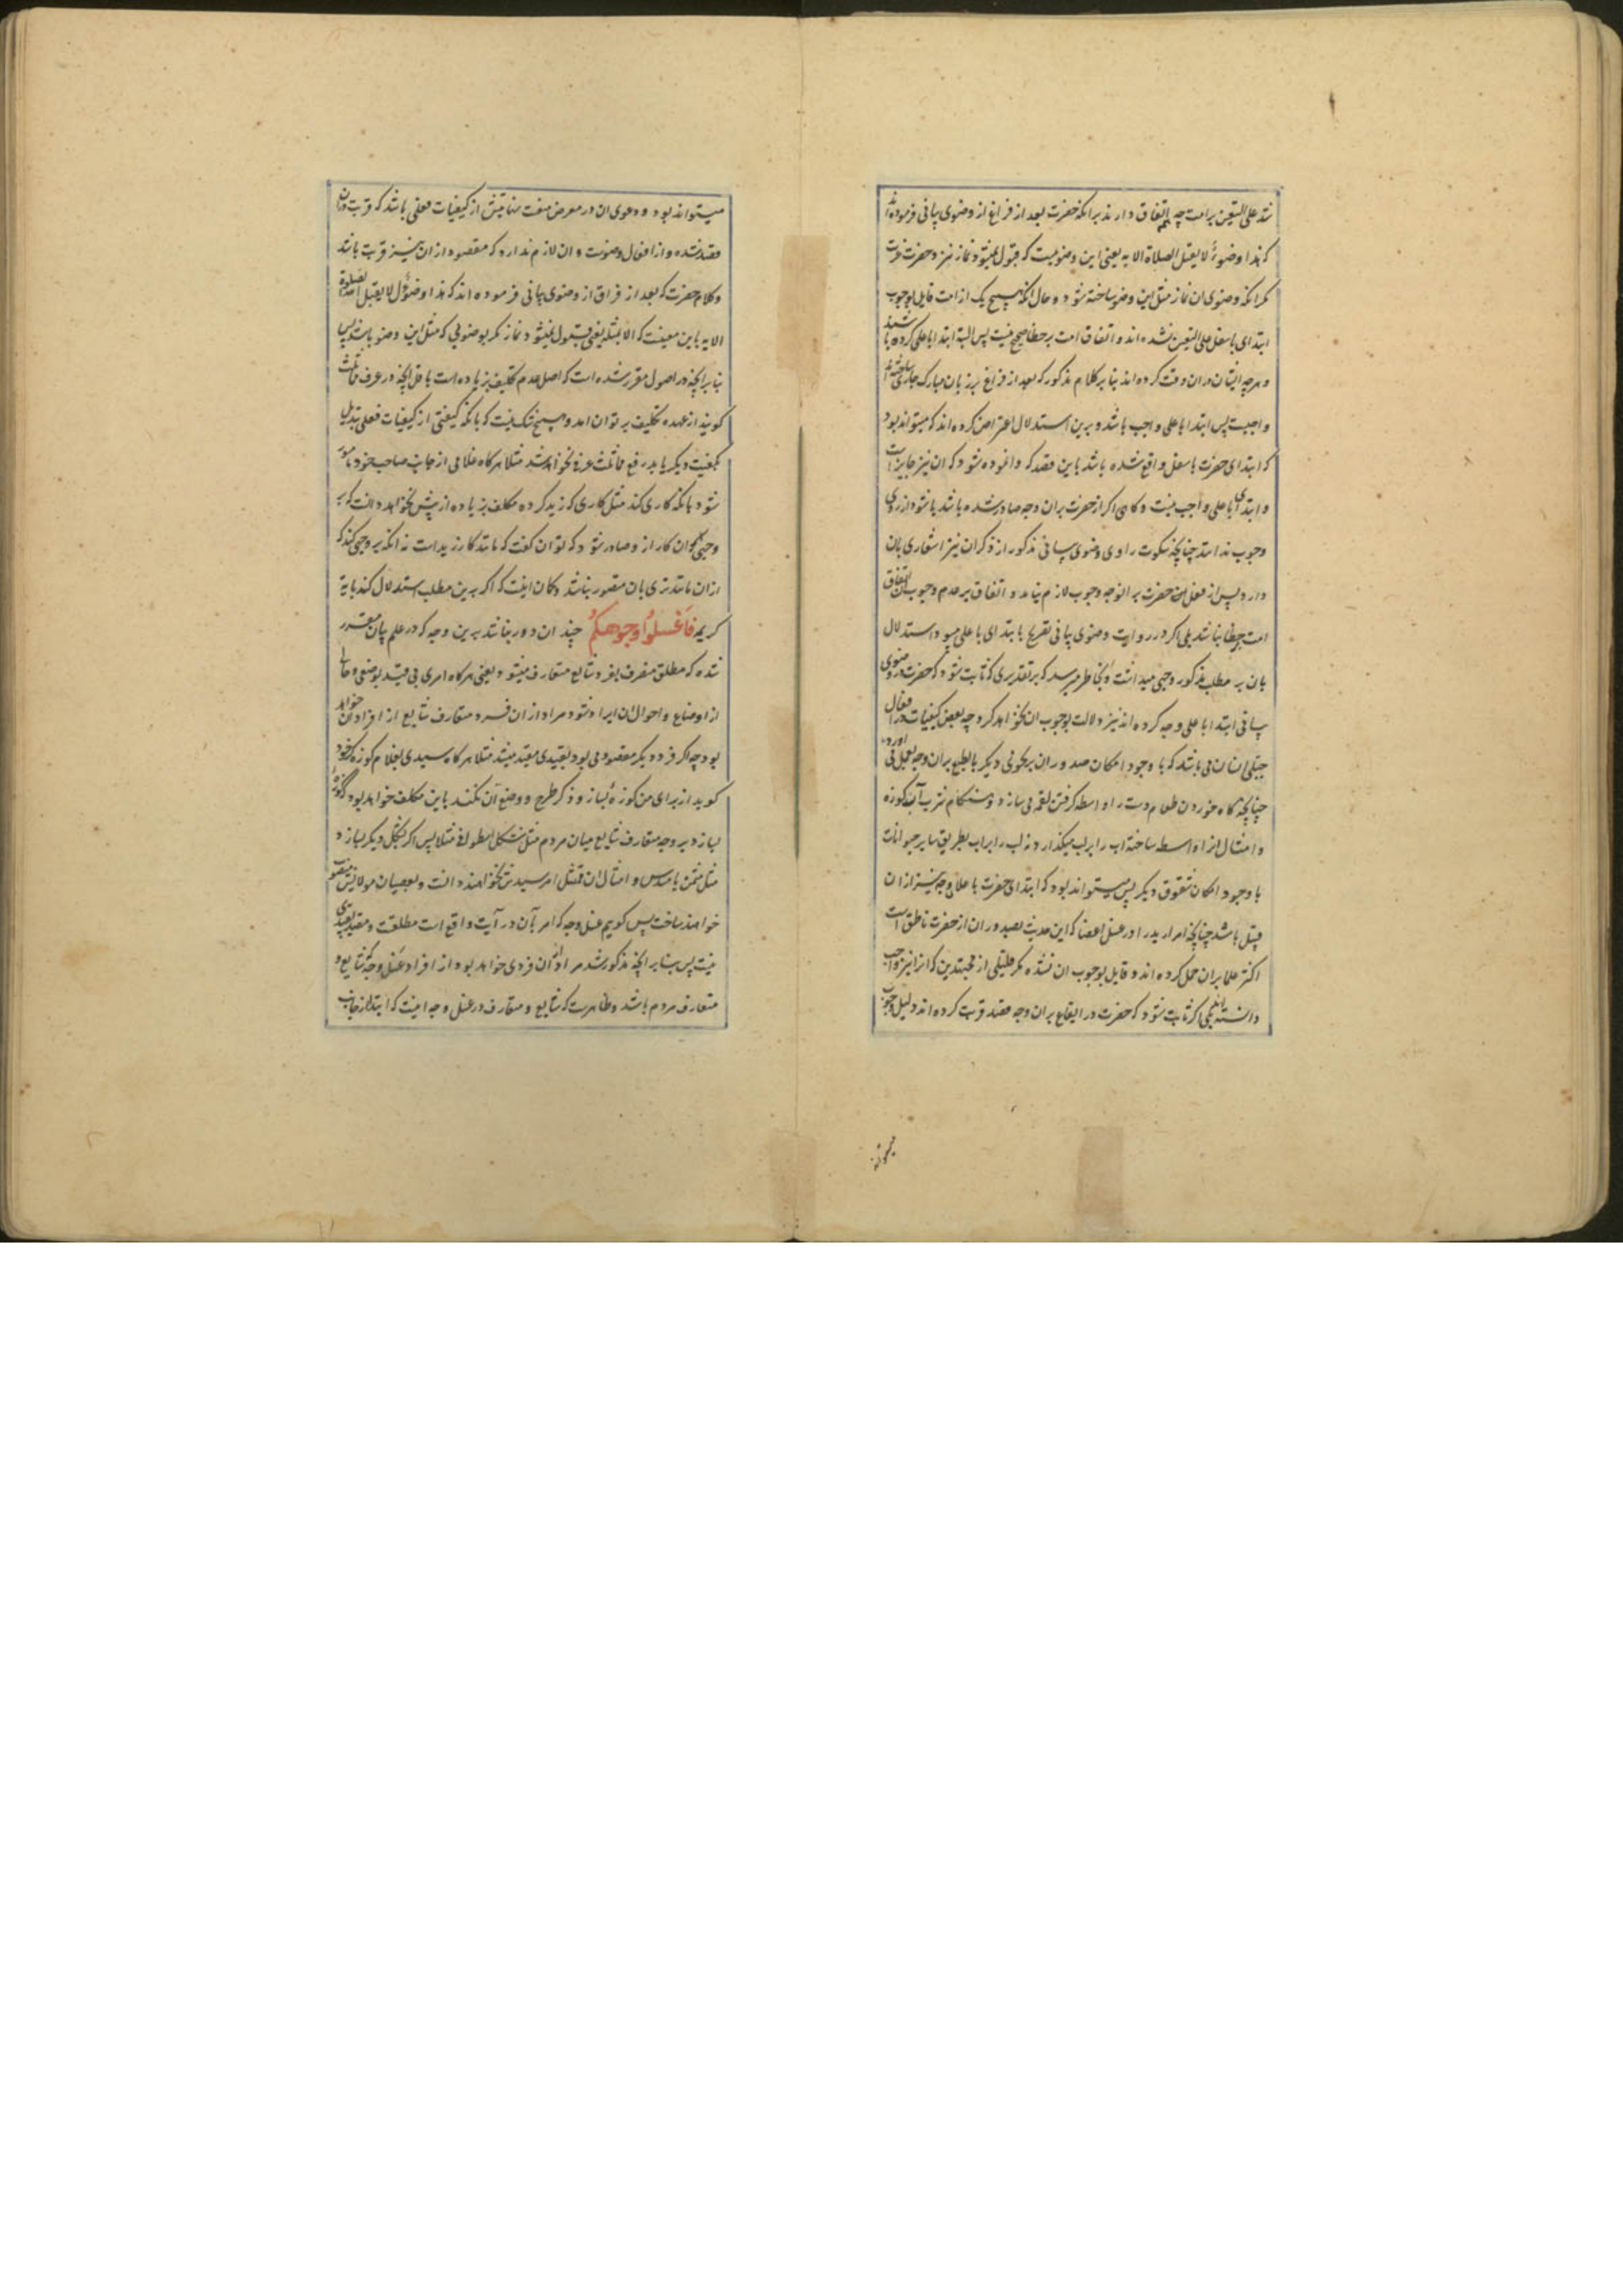 شد علی التعین بر امت چه اتفاق دارند برانکه حضرت بعد از فراغ از وضوی بیانی فرموده‌اند
که هذا وضوءٌ لا یقبل الصلاة الا به یعنی این وضوییست که قبول نمیشود نماز نزد حضرت عزت
مکر انکه وضوی ان نماز مثل این وضو ساخته شود و حال انکه هیچ یک از امت قایل بوجوب
ابتدای باسفل علی التعین نشده‌اند و اتفاق امت بر خطا صحیح نیست پس البته ابتدا باعلی کرده باشند
و هرچه ایشان دران وقت کرده‌اند بنا بر کلام مذکور که بعد از فراغ بر زبان مبارک جاری ساخته‌اند
واجبست پس ابتدا باعلی واجب باشد و برین استدلال اعتراض کرده‌اند که میتواند بود
که ابتدای حضرت باسفل واقع شده باشد باین قصد که وانموده شود که ان نیز جایز است
و ابتدای باعلی واجب نیست و کاهی اکر از حضرت بران وجه صادر شده باشد باشد از روی
وجوب نه استد چنانچه سکوت راوی وضوی بیانی مذکور از ذکر ان نیز اشعاری بان
دارد پس از فعل حضرت بر انوجه وجوب لازم نیاید و اتفاق بر عدم وجوب ان اتفاق
امت بر خطا نباشد بلی اکر در روایت وضوی بیانی تصریح بابتدای باعلی میبود استدلال
بان بر مطلب مذکور وجهی میداشت و بخاطر میرسد که بر تقدیری که ثابت شود که حضرت در وضوی
بیانی ابتدا باعلی وجه کرده‌اند نیز دلالت بوجوب ان نخواهد کرد چه بعض کیفیات در افعال
جبلی انسان می باشد که با وجود امکان صدور ان بر نحوی دیکر بالطبع بران وجه بعمل می اورد
چنانچه کاه خوردن طعام دست را واسطه کرفتن لقمه می سازد و هنکام شرب آب کوزه
و امثال انرا واسطه ساخته اب را بلب میکذارد نه لب را باب بطریق سایر حیوانات
با وجود امکان شقوق دیکر پس میتواند بود که ابتدای حضرت باعلای وجه نیز ازان
قبیل باشد چنانچه امرار ید را در غسل اعضا که این حدیث بصدور ان از حضرت ناطق است
اکثر علما بران حمل کرده‌اند و قایل بوجوب ان نشده مکر قلیلی از مجتهدین که انرا نیز واجب
دانسته‌اند بلی اکر ثابت شود که حضرت در ایقاع بران وجه قصد قربت کرده‌اند دلیل وجوب
میتواند
میتواند بود و دعوی ان در معرض منعست نهایتش از کیفیات فعلی باشد که قربت دران
قصد شده و از افعال وضوست و ان لازم ندارد که مقصود از ان نیز قربت باشد
و کلام حضرت که بعد از فراق از وضوی بیانی فرموده‌اند که هذا وضوءٌ لا یقبل الله الصلوة
الا به باین معنیست که الا بمثله یعنی قبول نمیشود نماز مکر بوضویی که مثل این وضو باشد پس
بنا بر انچه در اصول مقرر شده است که اصل عدم تکلیف بزیاده است باقل انچه در عرف مماثلت
کویند از عهده تکلیف بر توان امد و هیچ شک نیست که بانکه کیفیتی از کیفیات فعلی تبدیل
بکیفیت دیکر یابد رفع مماثلت عرفی نخواهد شد مثلا هرکاه غلامی از جانب صاحب خود مامور
شود بانکه کاری کند مثل کاری که زید کرده مکلف بزیاده از بیش نخواهد دانست که بر
وجهی ان کار ازو صادر شود که توان کفت که مانند کار زید است نه انکه بر وجهی کند که
ازان مانندتری بان متصور نباشد و کان اینست که اکر برین مطلب استدلال کند بایهٔ
کریمه فَاغْسِلُوا وُجُوهَكُمْ چندان دور نباشد برین وجه که در علم بیان مقرر
شده که مطلق منصرف بفرد شایع متعارف میشود یعنی هرکاه امری بی قید بوضعی و حالی
از اوضاع و احوال ان ایراد شود مراد ازان فرد متعارف شایع از افراد ان خواهد
بود چه اکر فرد دیکر مقصود می بود بقیدی مقید میشد مثلا هرکاه سیدی بغلام کوزه کر خود
کوید از برای من کوزه بساز و ذکر طرح و وضع آن نکند باین مکلف خواهد بود که کوزهٔ
بسازد بر وجه متعارف شایع میان مردم مثل شکل اسطوانه مثلا پس اکر بشکل دیکر بسازد
مثل مثمن یا مسدس و امثال ان ممتثل امر سیدش نخواهند دانست و بعصیان مولایش منسوب
خواهند ساخت پس کویم غسل وجه که امر بآن در آیت واقع است مطلقست و مقید بقیدی
نیست پس بنا بر انچه مذکور شد مراد ازان فردی خواهد بود از افراد غسل وجه که شایع و
متعارف مردم باشد و ظاهرست که شایع و متعارف در غسل وجه اینست که ابتدا از جانب